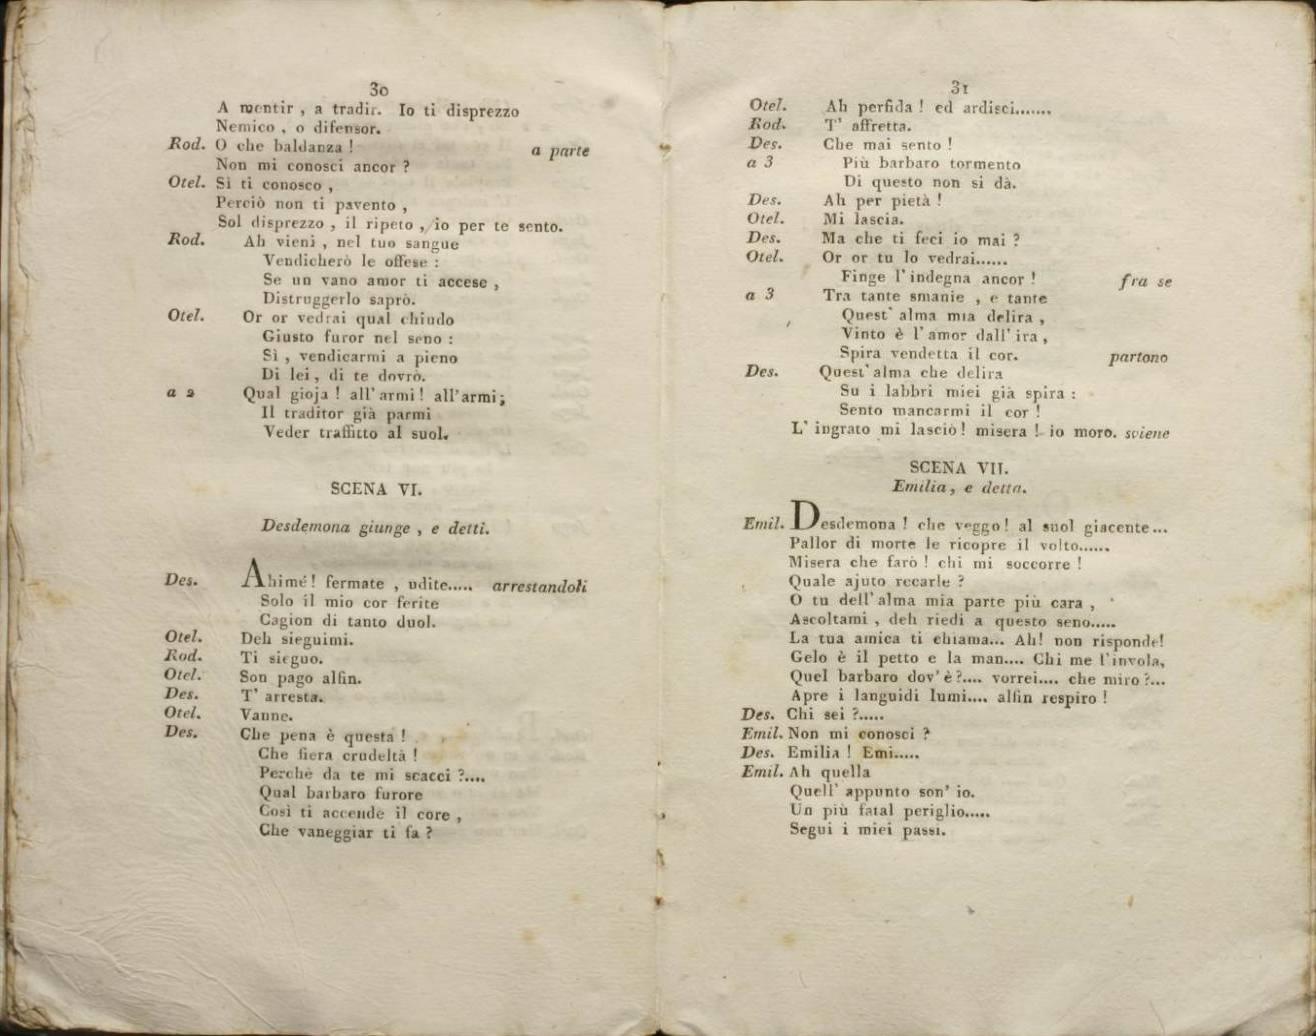 30
A mentir , a tradir. Io ti disprezzo
Nemico , o difensor.
Rod. O che baldanza ! a parte
Non mi conosci ancor ?
Otel. Sì ti conosco ,
Perciò non ti pavento ,
Sol disprezzo , il ripeto , io per te sento.
Rod. Ah vieni , nel tuo sangue
Vendicherò le offese :
Se un vano amor ti accese ,
Distruggerlo saprò.
Otel. Or or vedrai qual chiudo
Giusto furor nel seno :
Sì , vendicarmi a pieno
Di lei , di te dovrò.
a 2 Qual gioja ! all'armi ! all'armi ;
Il traditor già parmi
Veder traffitto al suol.
SCENA VI.
Desdemona giunge , e detti.
Des. Ahimé ! fermate , udite..... arrestandoli
Solo il mio cor ferite
Cagion di tanto duol.
Otel. Deh sieguimi.
Rod. Ti sieguo.
Otel. Son pago alfin.
Des. T' arresta.
Otel. Vanne.
Des. Che pena è questa !
Che fiera crudeltà !
Perchè da te mi scacci ?....
Qual barbaro furore
Così ti accende il core ,
Che vaneggiar ti fa ?
31
Otel. Ah perfida ! ed ardisci.......
Rod. T' affretta.
Des. Che mai sento !
a 3 Più barbaro tormento
Di questo non si dà.
Des. Ah per pietà !
Otel. Mi lascia.
Des. Ma che ti feci io mai ?
Otel. Or or tu lo vedrai......
Finge l'indegna ancor ! fra se
a 3 Tra tante smanie , e tante
Quest' alma mia delira ,
Vinto è l'amor dall' ira ,
Spira vendetta il cor. partono
Des. Quest'alma che delira
Su i labbri miei già spira :
Sento mancarmi il cor !
L' ingrato mi lasciò ! misera ! io moro. sviene
SCENA VII.
Emilia , e detta.
Emil. Desdemona ! che veggo ! al suol giacente...
Pallor di morte le ricopre il volto......
Misera che farò ! chi mi soccorre !
Quale ajuto recarle ?
O tu dell' alma mia parte più cara ,
Ascoltami , deh riedi a questo seno.....
La tua amica ti chiama... Ah! non risponde!
Gelo è il petto e la man.... Chi me l'invola,
Quel barbaro dov' è ?.... vorrei.... che miro ?...
Apre i languidi lumi.... alfin respiro !
Des. Chi sei ?.....
Emil. Non mi conosci ?
Des. Emilia ! Emi.....
Emil. Ah quella
Quell' appunto son' io.
Un più fatal periglio.....
Segui i miei passi.